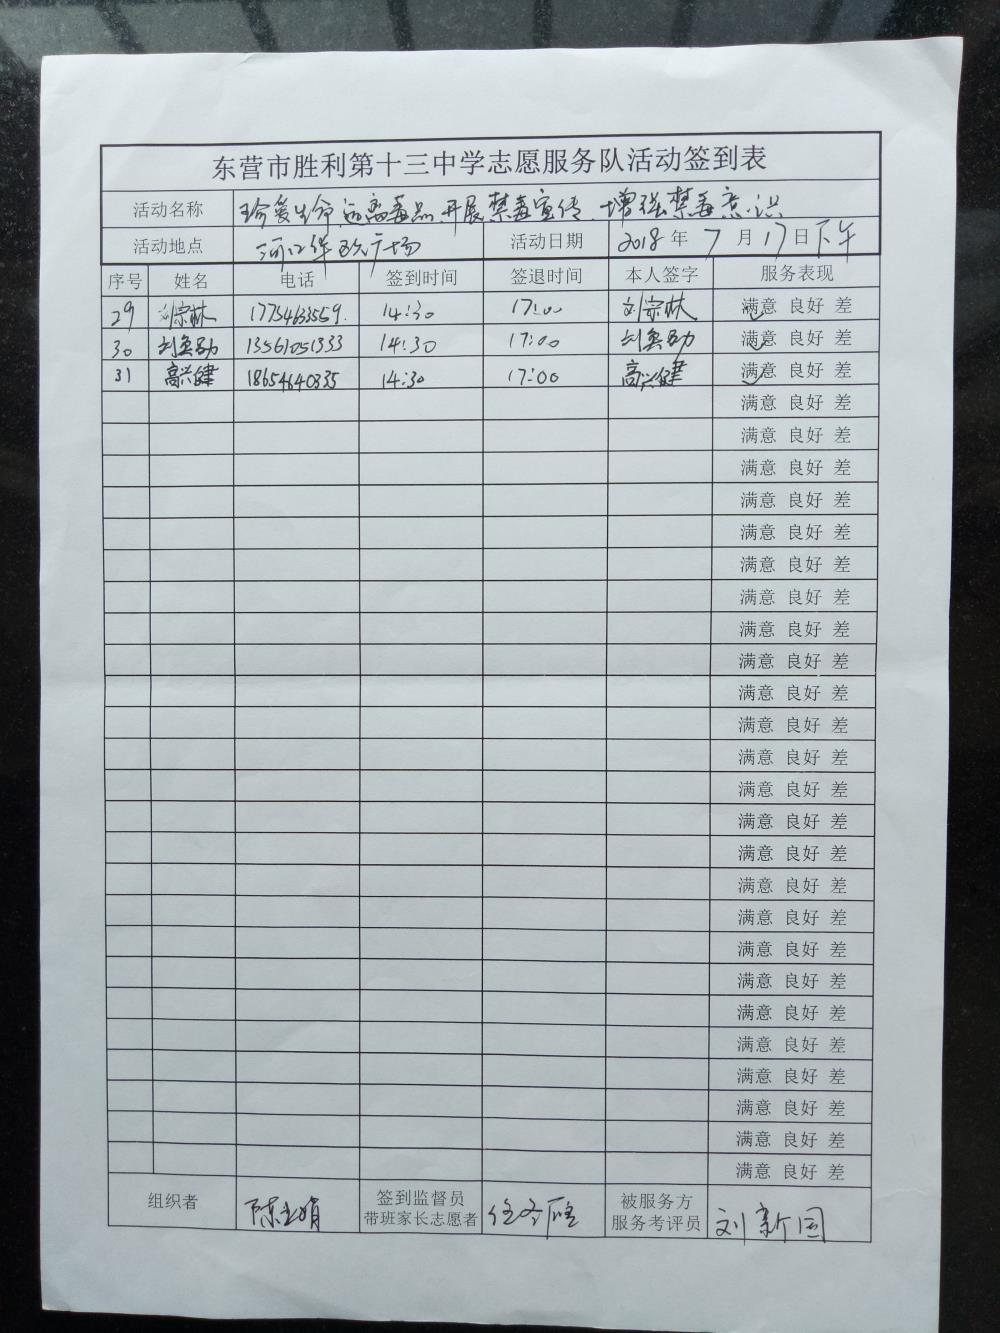 东营市胜利第十三中学志愿服务队活动签到表
活动名称 珍爱生命 远离毒品 开展禁毒宣传 增强禁毒意识
活动地点 河口华政广场 活动日期 2018年7月17日下午
序号 姓名 电话 签到时间 签退时间 本人签字 服务表现
29 刘宗林 17754633559 14:30 17:00 刘宗林 满意 良好 差
30 13561051333 14:30 17:00 满意 良好 差
31 高兴健 18654640835 14:30 17:00 高兴健 满意 良好 差
满意 良好 差
满意 良好 差
满意 良好 差
满意 良好 差
满意 良好 差
满意 良好 差
满意 良好 差
满意 良好 差
满意 良好 差
满意 良好 差
满意 良好 差
满意 良好 差
满意 良好 差
满意 良好 差
满意 良好 差
满意 良好 差
满意 良好 差
满意 良好 差
满意 良好 差
满意 良好 差
满意 良好 差
满意 良好 差
满意 良好 差
满意 良好 差
满意 良好 差
组织者 签到监督员 被服务方 刘新国
带班家长志愿者 服务考评员